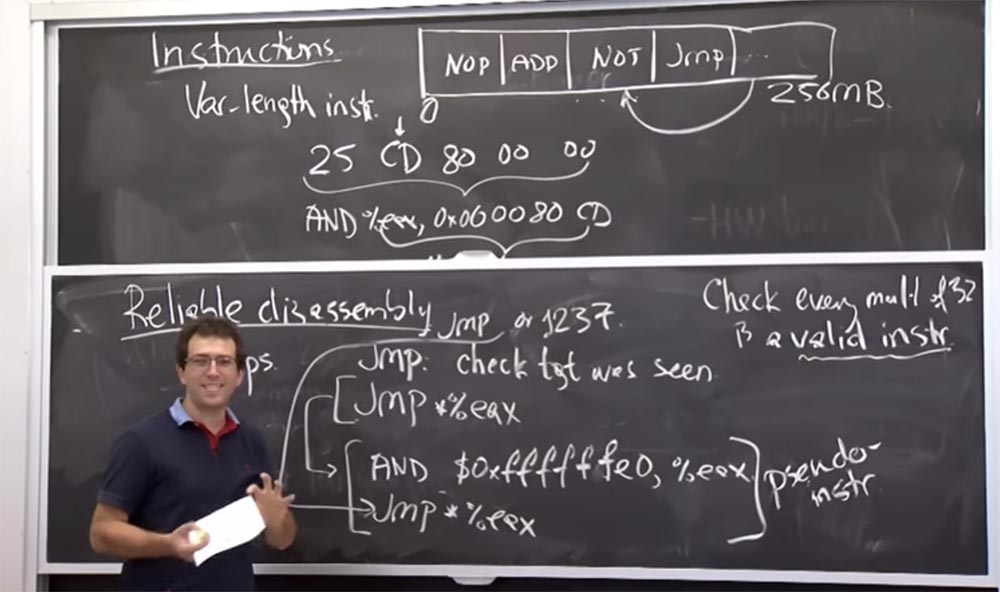 Instructions
NOP ADD NOT Jmp ...
Var-length instr.
0
256MB.
25 CD 80 00 00
AND %eax, 0x000080 CD
Reliable disassembly
Jmp or 1237.
ps.
Jmp: check tgt was seen.
Jmp *%eax
AND $0xffffffe0, %eax
Jmp *%eax
pseudo-
instr
Check every mult of 32
B a valid instr.